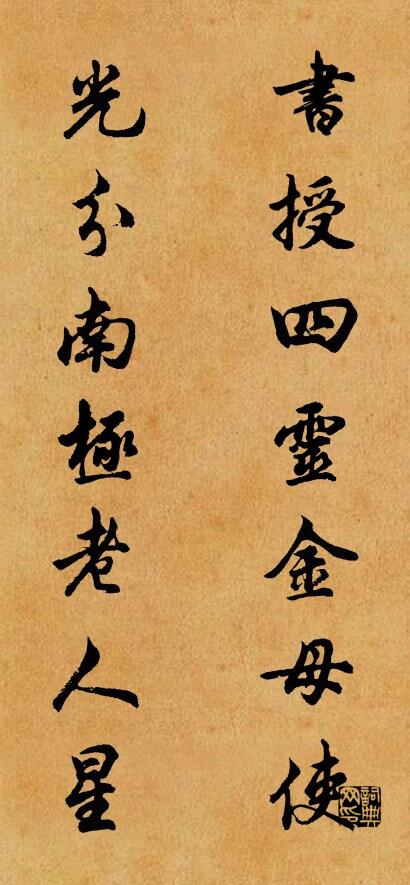 書授四靈金母使
光分南極老人星